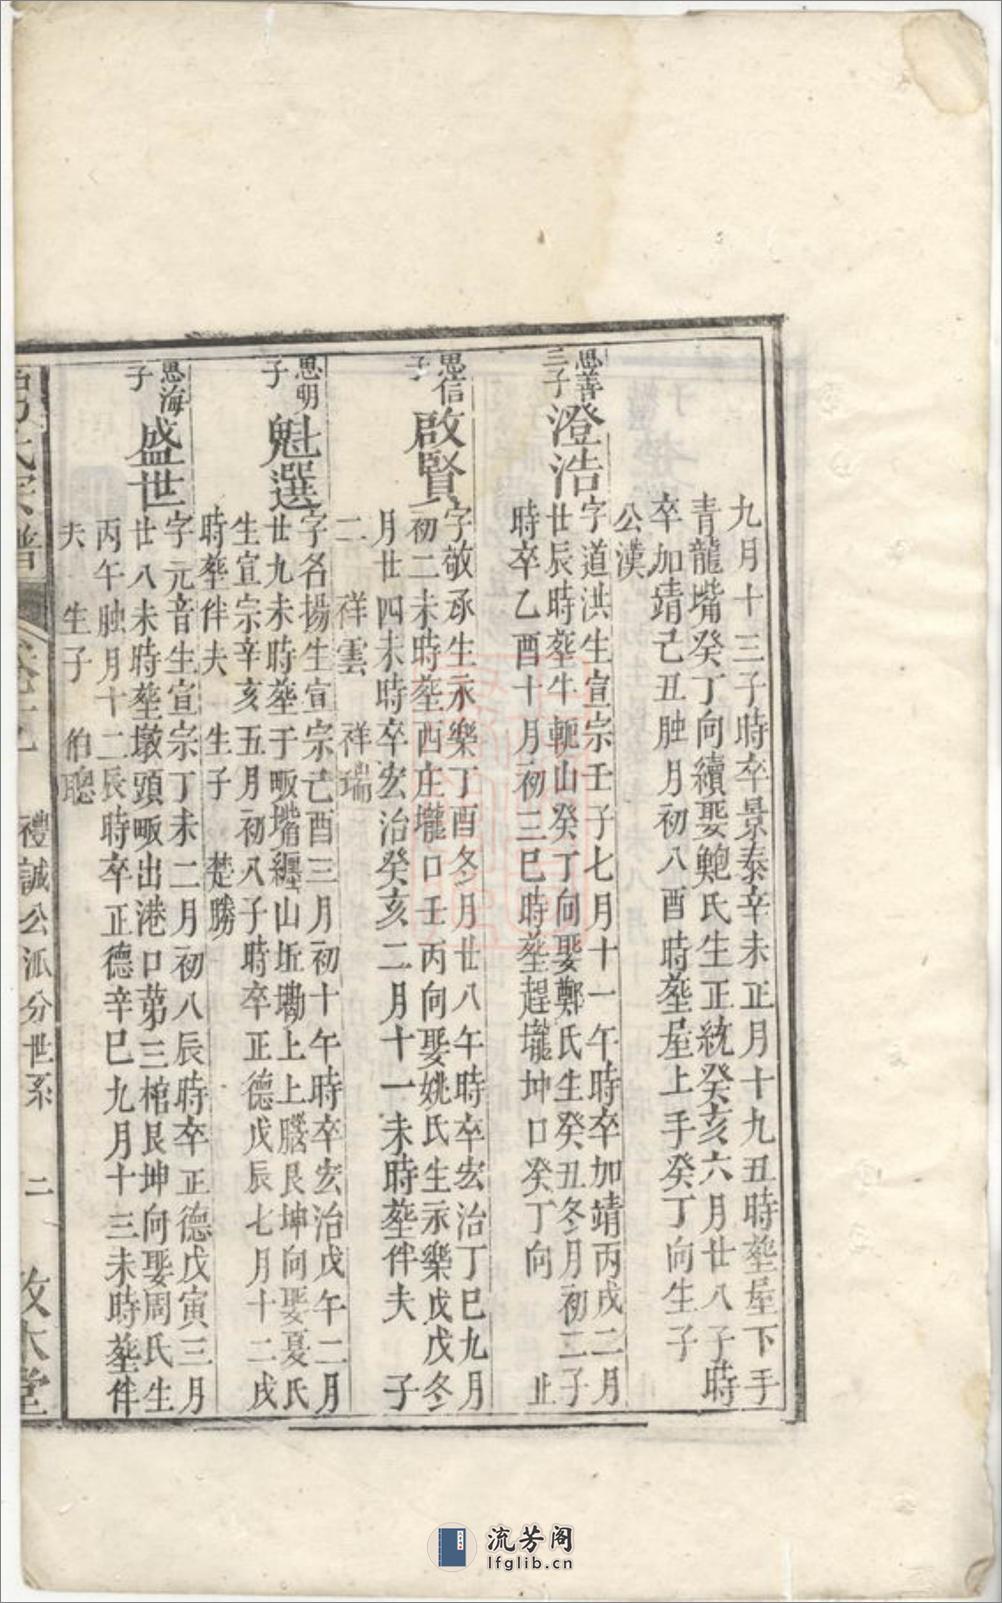 九月十三子時卒景泰辛未正月十九丑時塟屋下手
青龍嘴癸丁向續娶鮑氏生正統癸亥六月廿八子時
卒加靖己丑腁月初八酉時塟屋上手癸丁向生子
公漢
思善三子
澄浩
字道洪生宣宗壬子七月十一午時卒加靖丙戌二月
廿辰時塟牛軛山癸丁向娶鄭氏生癸丑冬月初二子
時卒乙酉十月初三巳時塟趕壠坤口癸丁向 止
思信子
啟賢
字敬承生永樂丁酉冬月廿八午時卒宏治丁巳九月
初二未時塟西庄壠口壬丙向娶姚氏生永樂戊戌冬
月廿四未時卒宏治癸亥二月十一未時塟伴夫 子
二 祥雲 祥瑞
思明子
魁選
字名揚生宣宗己酉三月初十午時卒宏治戊午二月
廿九未時塟于畈嘴纏山坵墈上上騰艮坤向娶夏氏
生宣宗辛亥五月初八子時卒正德戊辰七月十二戌
時塟伴夫 生子 楚勝
思海子
盛世
字元音生宣宗丁未二月初八辰時卒正德戊寅三月
廿八未時塟墩頭畈出港口第三棺艮坤向娶周氏生
丙午腁月十二辰時卒正德辛巳九月十三未時塟伴
夫 生子 伯聰
氏宗譜 禮誠公派分世系 二 堂
流芳阁
lfglib.cn